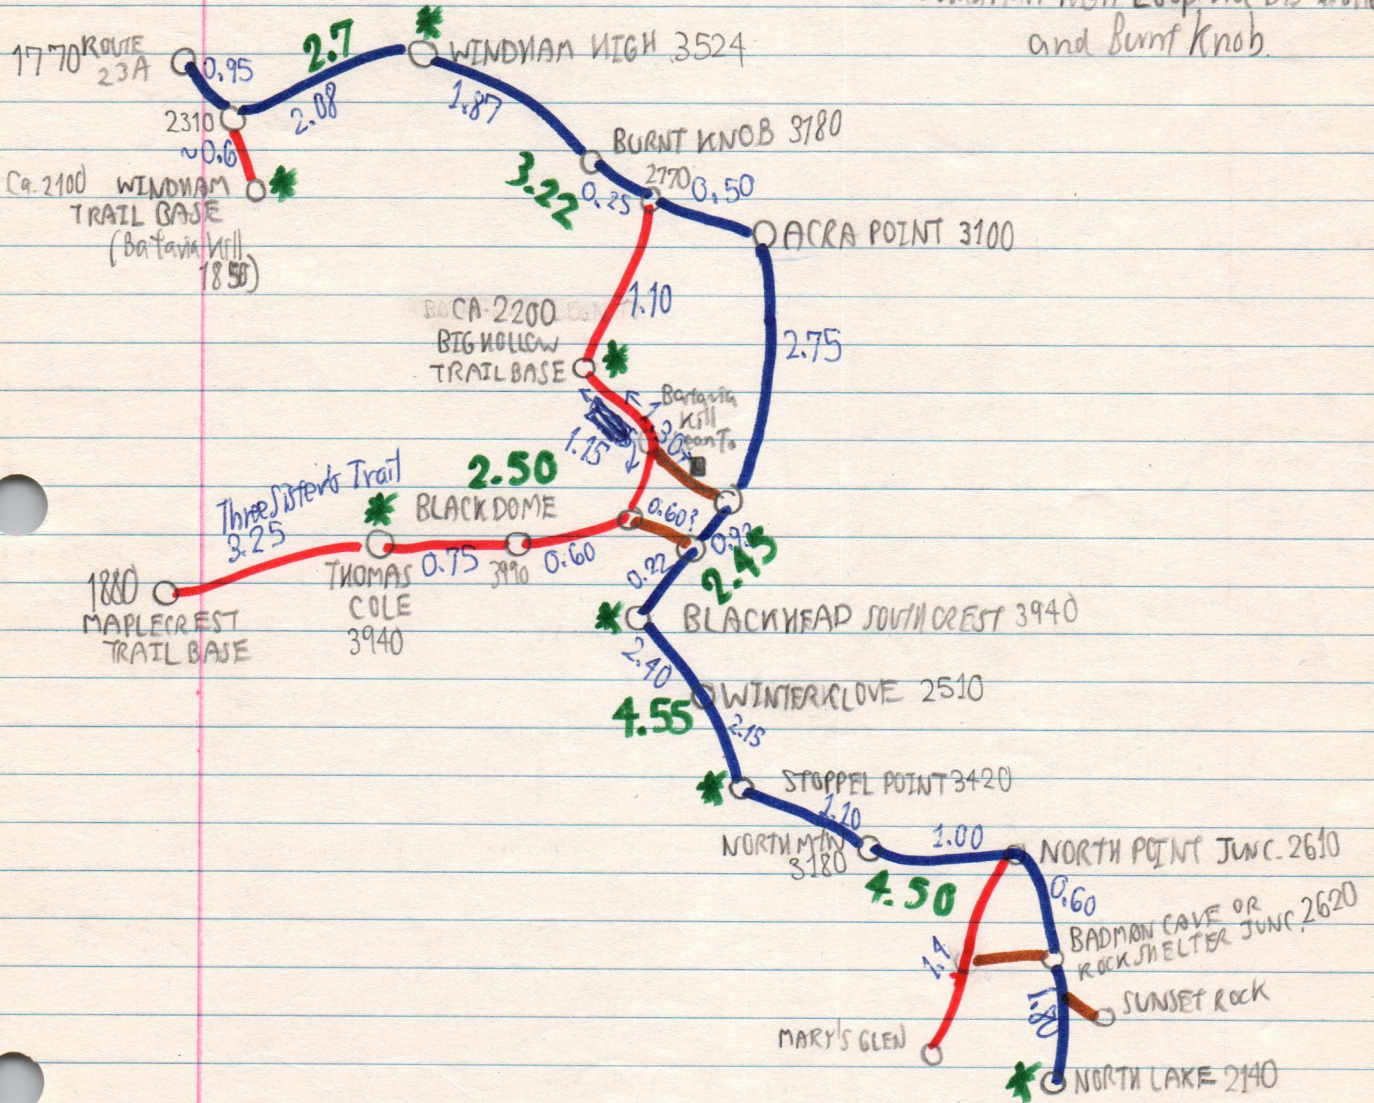 and Burnt Knob.
1770 ROUTE
23A
0.95
2.7
2.08
WINDHAM HIGH 3524
1.87
2310
~0.6
Ca. 2100 WINDHAM
TRAIL BASE
(Batavia Kill
BURNT KNOB 3180
3.22
0.25
2770
0.50
ACRA POINT 3100
2.75
1.10
CA. 2200
BIG HOLLOW
TRAIL BASE
Batavia
Kill
1.30
1.15
Three Sisters Trail
3.25
2.50
BLACK DOME
0.60?
2.45
0.22
1880
MAPLECREST
TRAIL BASE
THOMAS
COLE
3940
0.75
3990
0.60
BLACKHEAD SOUTH CREST 3940
2.40
WINTERCLOVE 2510
4.55
2.15
STOPPEL POINT 3420
1.20
NORTH MTN
3180
1.00
NORTH POINT JUNC. 2610
4.50
0.60
BADMAN CAVE OR
ROCK SHELTER JUNC. 2620
1.4
1.80
SUNSET ROCK
MARY'S GLEN
NORTH LAKE 2140